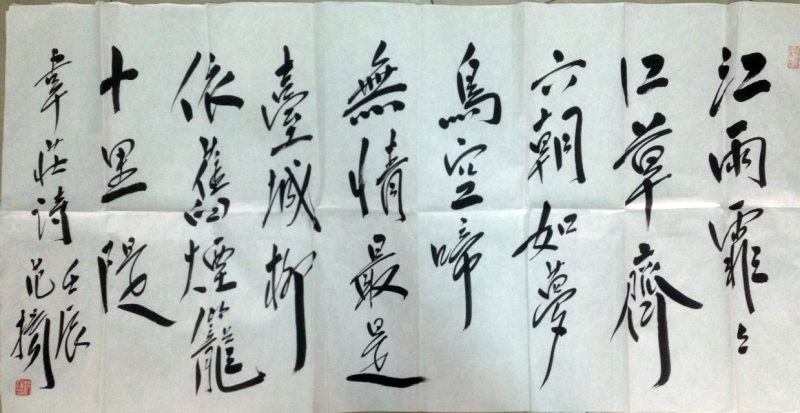 江雨霏々
江草齊
六朝如夢
鳥空啼
無情最是
臺城柳
依舊煙籠
十里隄
韋莊詩
壬辰
范